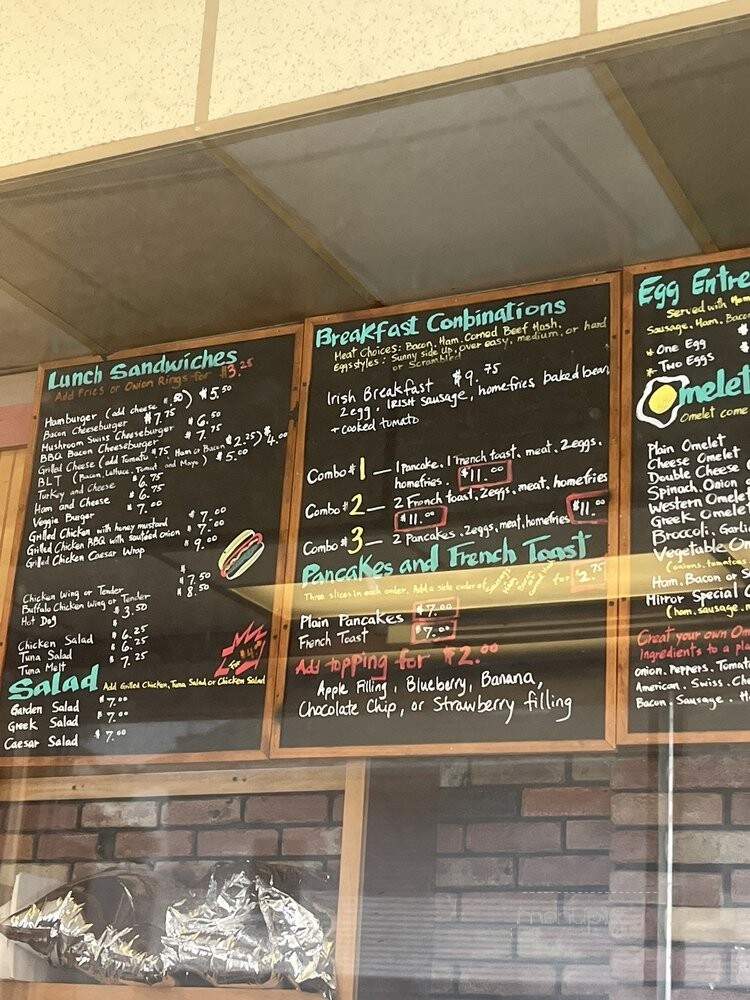 Lunch Sandwiches
Add Fries or Onion Rings for $3.25
Hamburger (add cheese $.50) $5.50
Bacon Cheeseburger $7.75
Mushroom Swiss Cheeseburger $6.50
BBQ Bacon Cheeseburger $7.75
Grilled Cheese (add Tomato $.75 Ham or Bacon $2.25) $4.00
BLT (Bacon, Lettuce, Tomat and Mayo) $5.00
Turkey and Cheese $6.75
Ham and Cheese $6.75
Veggie Burger $7.00
Grilled Chicken with honey mustard $7.00
Grilled Chicken BBQ with sauteed onion $7.00
Grilled Chicken Caesar Wrap $9.00
Chicken Wing or Tender $7.50
Buffalo Chicken Wing or Tender $8.50
Hot Dog $3.50
Chicken Salad $6.25
Tuna Salad $6.25
Tuna Melt $7.25
Salad Add Grilled Chicken, Tuna Salad or Chicken Salad
for
Garden Salad $7.00
Greek Salad $7.00
Caesar Salad $7.00
Breakfast Conbinations
Meat Choices: Bacon, Ham, Corned Beef Hash,
Egg styles: Sunny side up, over easy, medium, or hard
or Scrambled
Irish Breakfast $9.75
2 egg, Irish sausage, homefries baked bean
+ cooked tomato
Combo # 1 — 1 Pancake, 1 French toast, meat, 2 eggs,
homefries. $11.00
Combo # 2 — 2 French toast, 2 eggs, meat, homefries
$11.00
Combo # 3 — 2 Pancakes, 2 eggs, meat, homefries $11.00
Pancakes and French Toast
Three slices in each order. Add a side order of for $2.75
Plain Pancakes $7.00
French Toast $7.00
Add topping for $2.00
Apple Filling, Blueberry, Banana,
Chocolate Chip, or Strawberry filling
Egg Entre
Served with Hom
Sausage, Ham, Baco
* One Egg $
* Two Eggs $
Omelet
Omelet come
Plain Omelet
Cheese Omelet
Double Cheese
Spinach, Onion
Western Omelet
Greek Omelet
Broccoli, Garlic
Vegetable Om
(onions, tomatoes
Ham, Bacon or S
Mirror Special
(ham, sausage,
Creat your own Om
Ingredients to a pla
Onion, Peppers, Tomat
American, Swiss, Che
Bacon, Sausage, H
menupix